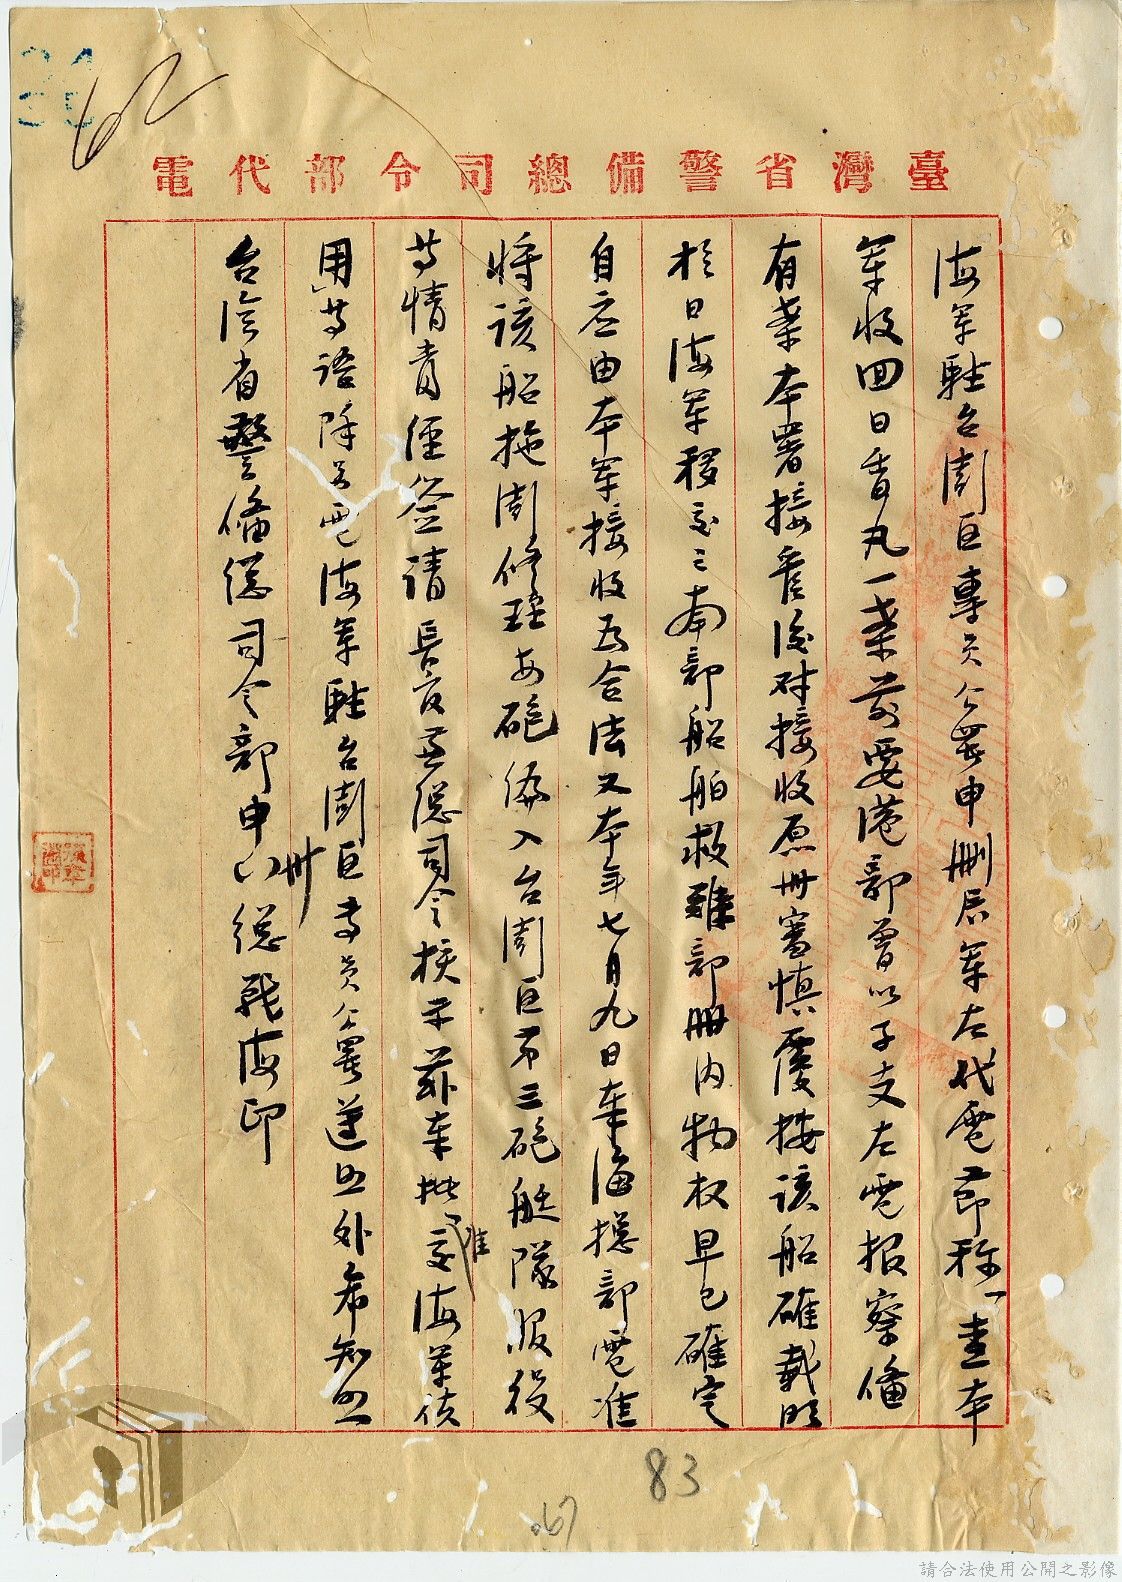 62
臺灣省警備總司令部代電
海軍駐台澎區專員公署申刪辰軍左代電節稱「查本
軍收回日香丸一案前要港部曾以子支左電報察備
有案本署接長後对接收原冊審慎覆按該船確載明
於日海軍移交之南部船舶救難部冊内物权早已確定
自应由本軍接收为合法又本年七月九日奉海總部電准
将該船拖澎修理安砲編入台澎區第三砲艇隊服役
等情責徑签請長官兼總司令核示茲奉批「准交海軍使
用」等語除分電海軍駐台澎區專員公署遵照外希知照
台湾省警備總司令部申卅総戰海印
83
67
請合法使用公開之影像